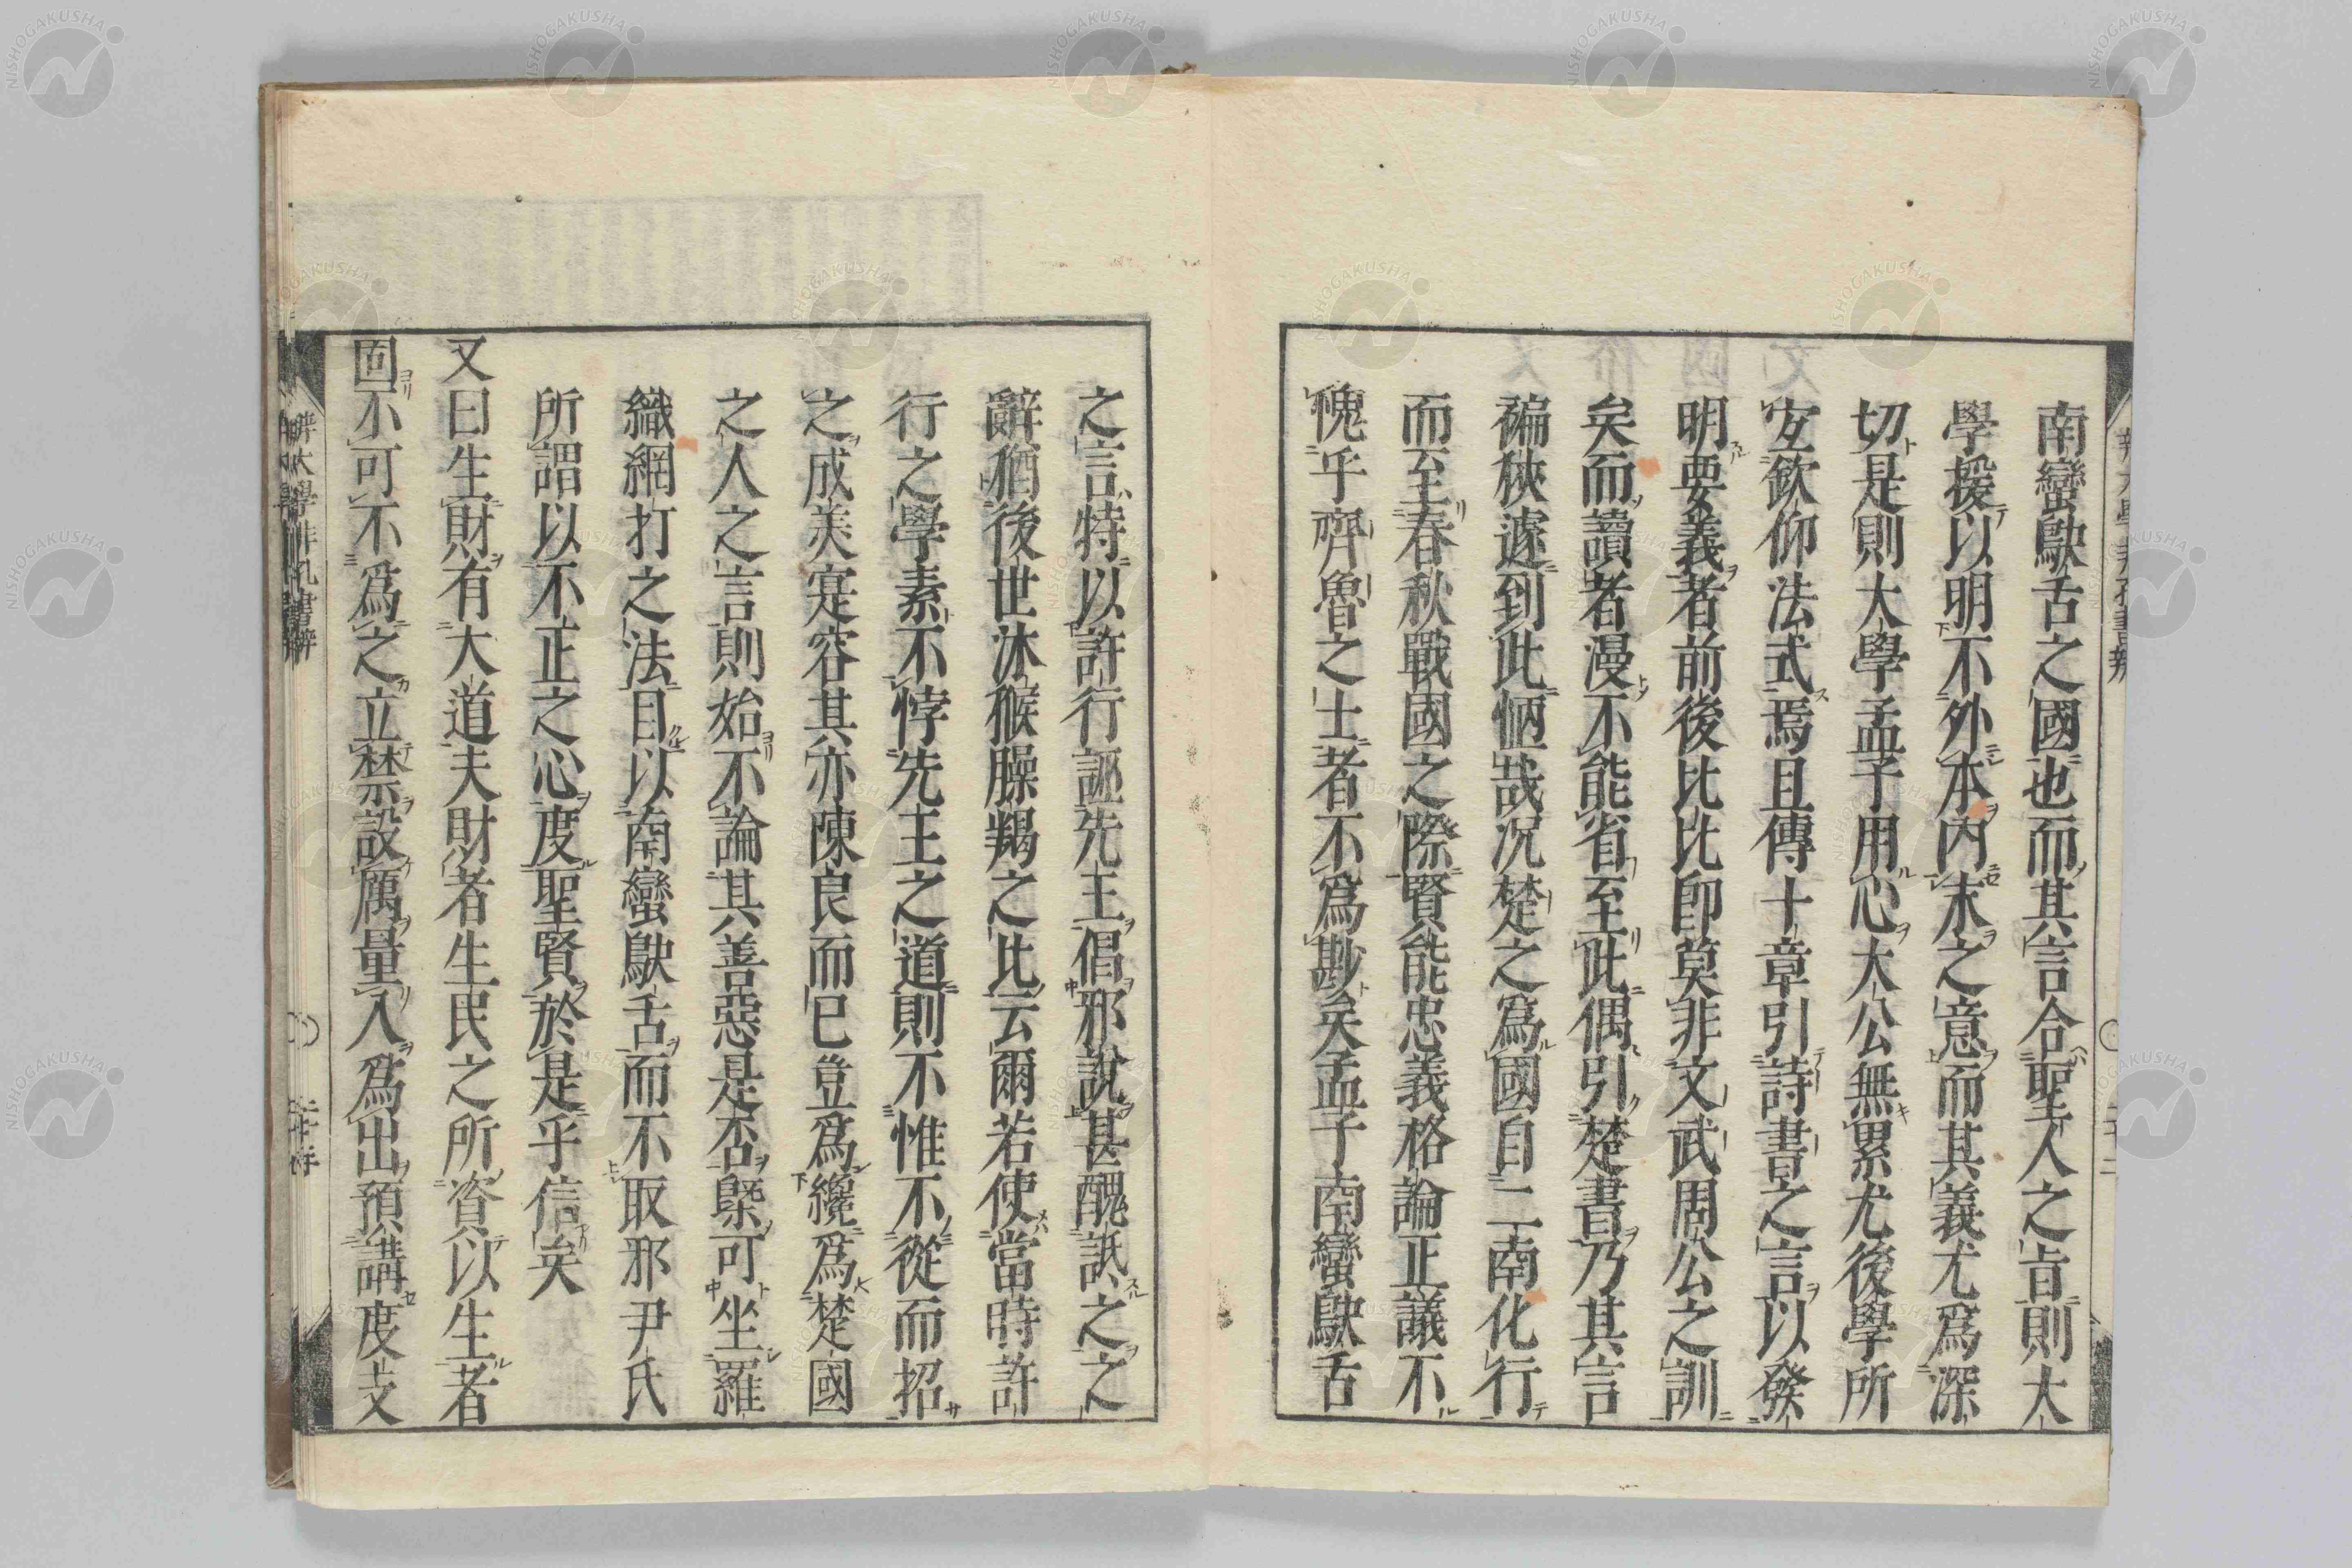 南蠻鴃舌之國也而其言合聖人之旨則大
學援以明不外本內末之意而其義尤爲深
切是則大學孟子用心大公無累尤後學所
宜欽仰法式焉且傳十章引詩書之言以發
明要義者前後比比卽莫非文武周公之訓
矣而讀者漫不能省至此偶引楚書乃其言
褊狹遽到此恧哉况楚之爲國自二南化行
而至春秋戰國之際賢能忠義格論正議不
愧乎齊魯之士者不爲尠矣孟子南蠻鴃舌
之言特以許行誣先王倡邪說甚醜詆之之
辭猶後世沐猴臊羯之比云爾若使當時許
行之學素不悖先王之道則不惟不從而招
之成美寔容其亦陳良而已豈爲纔爲楚國
之人之言則始不論其善惡是否槩可坐羅
織網打之法目以南蠻鴃舌而不取邪尹氏
所謂以不正之心度聖賢於是乎信矣
又曰生財有大道夫財者生民之所資以生者
固不可不爲之立禁設厲量入爲出預講度支
辨大學非孔書辨
NISHOGAKUSHA